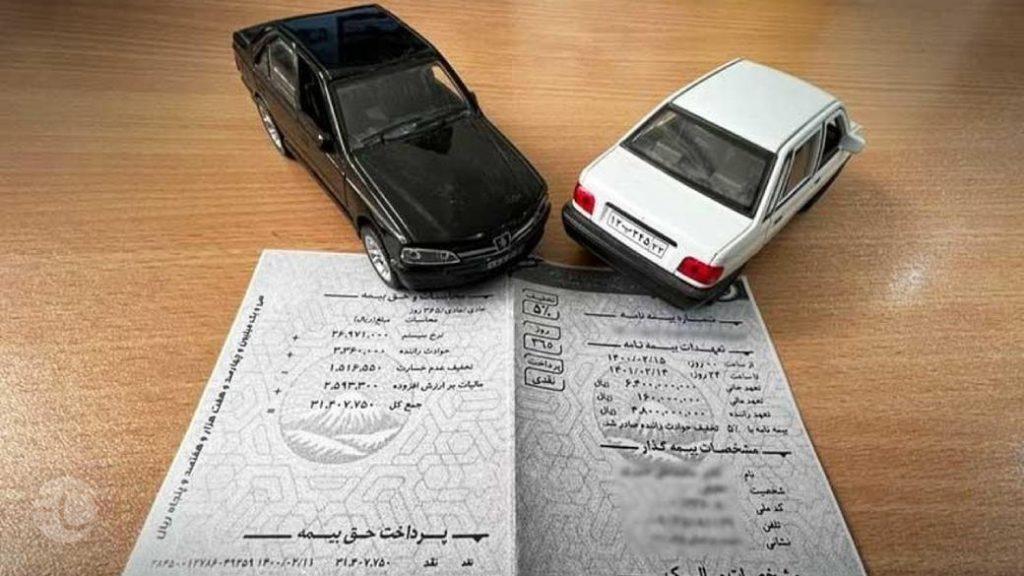 ۱۲ب۳۴۵/۲۲
تخفیف
۵%
روز
۳۶۵
پرداخت
نقدی
شماره بیمه نامه
تعهدات بیمه نامه
از ساعت ۰۰ روز: ۱۴۰۰/۰۲/۱۵
تا ساعت ۲۴ روز: ۱۴۰۱/۰۲/۱۴
تعهد جانی ۶,۴۰۰,۰۰۰,۰۰۰ ریال
تعهد مالی ۱۶۰,۰۰۰,۰۰۰ ریال
تعهد راننده ۴,۸۰۰,۰۰۰,۰۰۰ ریال
بیمه نامه با ۵% تخفیف حوادث راننده صادر شد.
مشخصات بیمه گذار
نام
شخصیت
کد ملی
تلفن
نشانی
محاسبات و حق بیمه
عادی/عادی/۳۶۵ روز
محاسبات مبلغ(ریال)
نرخ سیستم ۲۶,۹۷۱,۰۰۰
حوادث راننده ۳,۳۶۰,۰۰۰ +
تخفیف عدم خسارت ۱,۵۱۶,۵۵۰ -
مالیات بر ارزش افزوده ۲,۵۹۳,۳۰۰ +
جمع کل ۳۱,۴۰۷,۷۵۰ =
سی و یک میلیون و چهارصد و هفت هزار و هفتصد و پنجاه ریال
پرداخت حق بیمه
نقد نقد ۳۱,۴۰۷,۷۵۰ ۱۴۰۰/۰۲/۱۱